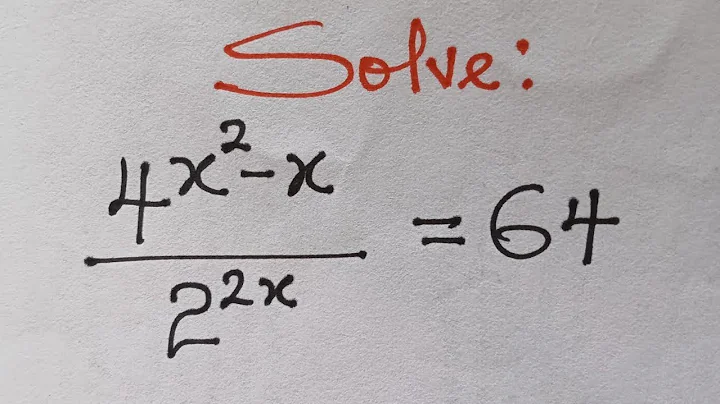 Solve:
4^{x^2-x}
2^{2x}
= 64